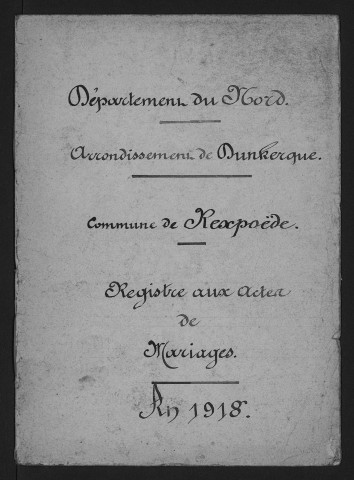 Département du Nord.
Arrondissement de Dunkerque.
Commune de Rexpoëde.
Registre aux Actes
de
Mariages.
An 1918.